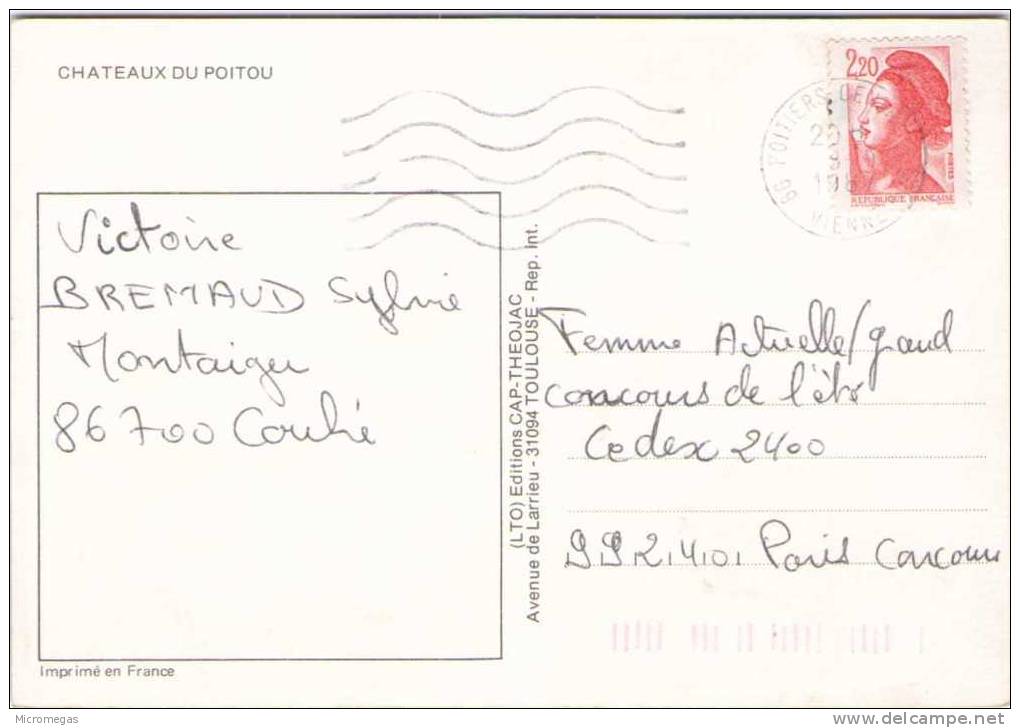 CHATEAUX DU POITOU
2,20
POSTES
REPUBLIQUE FRANÇAISE
86 POITIERS
VIENNE
Victoire
BREMAUD Sylvie
Montaigu
86700 Couhé
(LTO) Editions CAP-THEOJAC
Avenue de Larrieu - 31094 TOULOUSE - Rep. int.
Femme Actuelle/grand
concours de l'été
Cedex 2400
99240 Paris Concours
Imprimé en France
Micromegas
www.delcampe.net